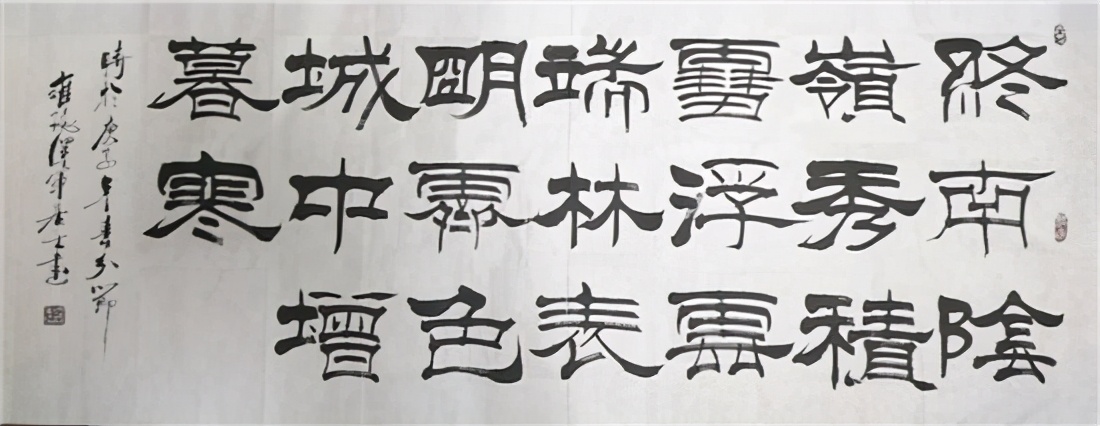 終南陰
嶺秀積
雪浮雲
端林表
朙霽色
城中增
暮寒
時於庚子年春分節
居士書